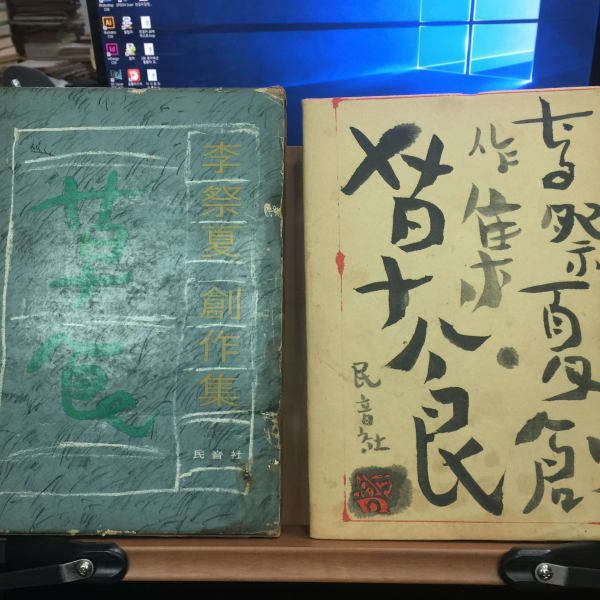 草食
李祭夏 創作集
民音社
李祭夏創
作集
草食
民音社